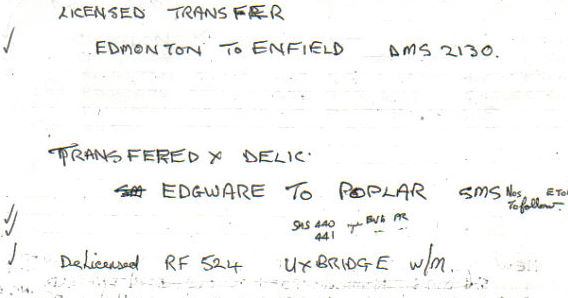 LICENSED TRANSFER
EDMONTON TO ENFIELD DMS 2130.
TRANSFERED X DELIC.
EDGWARE TO POPLAR SMS Nos. ETO
To follow
SMS 440
441
Delicensed RF 524 UXBRIDGE W/M.